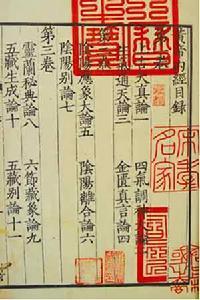 内經目錄
天真論一 四氣調
通天論三 金匱真言論四
陰陽應象大論五 陰陽離合論六
陰陽别論七
第三卷
靈蘭秘典論八 六節藏象論九
五藏生成論十 五藏别論十一
名家